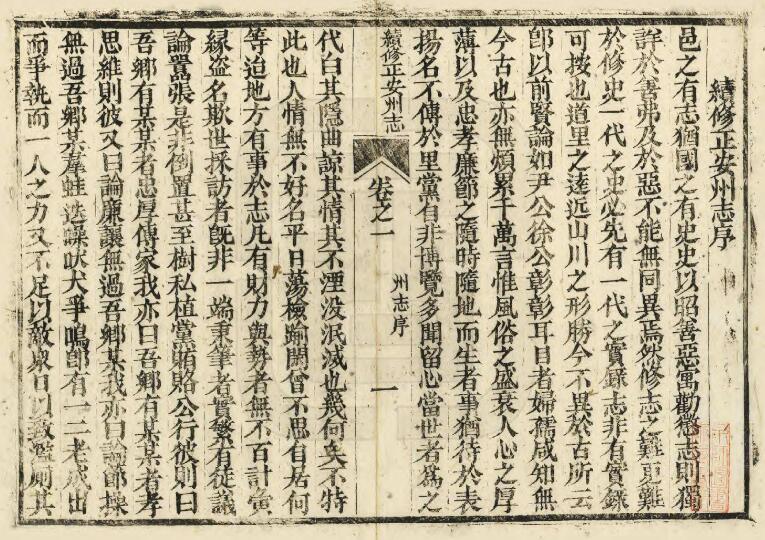 續修正安州志序
邑之有志猶國之有史史以昭善惡寓勸懲志則獨
詳於善弗及於惡不能無同異焉然修志之難更難
於修史一代之史必先有一代之實錄志非有實錄
可按也道里之遠近山川之形勝今不異於古所云
卽以前賢論如尹公徐公彰彰耳目者婦孺咸知無
今古也亦無煩累千萬言惟風俗之盛衰人心之厚
薄以及忠孝廉節之隨時隨地而生者事猶待於表
揚名不傳於里黨自非博覽多聞留心當世者爲之
續修正安州志
卷之一
州志序
一
代白其隱曲諒其情其不湮没泯滅也幾何矣不特
此也人情無不好名平日蕩檢踰閑曾不思自居何
等迫地方有事於志凡有財力與埶者無不百計夤
緣盗名欺世採訪者旣非一端秉筆者實繁有徒議
論囂張是非倒置甚至樹私植黨賄賂公行彼則曰
吾鄉有某某者忠厚傳家我亦曰吾鄉有某某者孝
思維則彼又曰論廉讓無過吾鄉某我亦曰論節操
無過吾鄉某羣蛙迭噪吠犬爭鳴卽有一二老成出
而爭執而一人之力又不足以敵衆口以致濫厠其